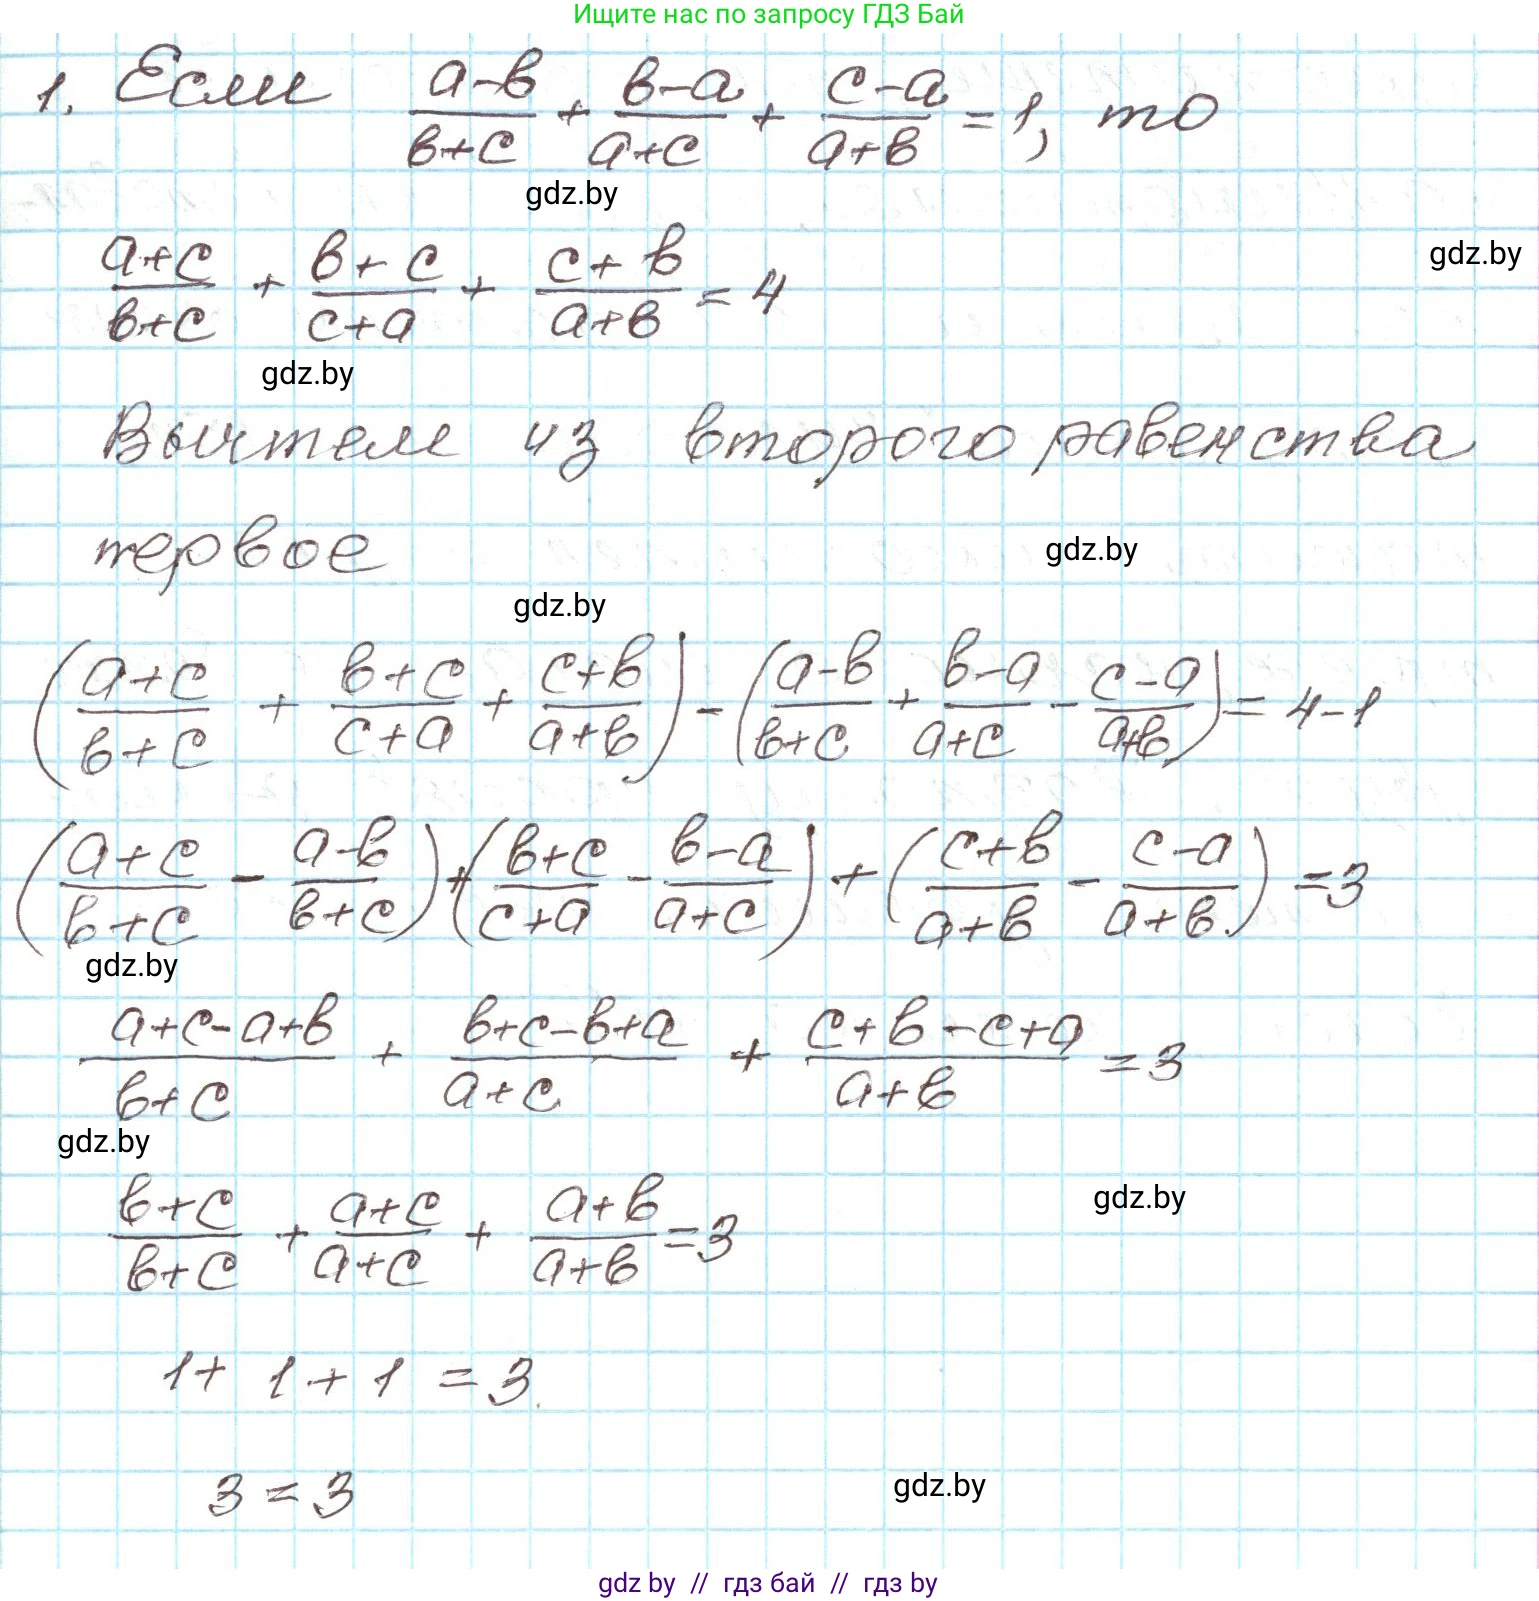 Ищите нас по запросу ГДЗ Бай
1. Если (a-b)/(b+c) + (b-a)/(a+c) + (c-a)/(a+b) = 1, то
gdz.by
(a+c)/(b+c) + (b+c)/(c+a) + (c+b)/(a+b) = 4
gdz.by
gdz.by
Вычтем из второго равенства
первое
gdz.by
gdz.by
((a+c)/(b+c) + (b+c)/(c+a) + (c+b)/(a+b)) - ((a-b)/(b+c) + (b-a)/(a+c) - (c-a)/(a+b)) = 4-1
((a+c)/(b+c) - (a-b)/(b+c)) + ((b+c)/(c+a) - (b-a)/(a+c)) + ((c+b)/(a+b) - (c-a)/(a+b)) = 3
gdz.by
(a+c-a+b)/(b+c) + (b+c-b+a)/(a+c) + (c+b-c+a)/(a+b) = 3
gdz.by
(b+c)/(b+c) + (a+c)/(a+c) + (a+b)/(a+b) = 3
gdz.by
1 + 1 + 1 = 3.
3 = 3
gdz.by
gdz by // гдз бай // гдз by